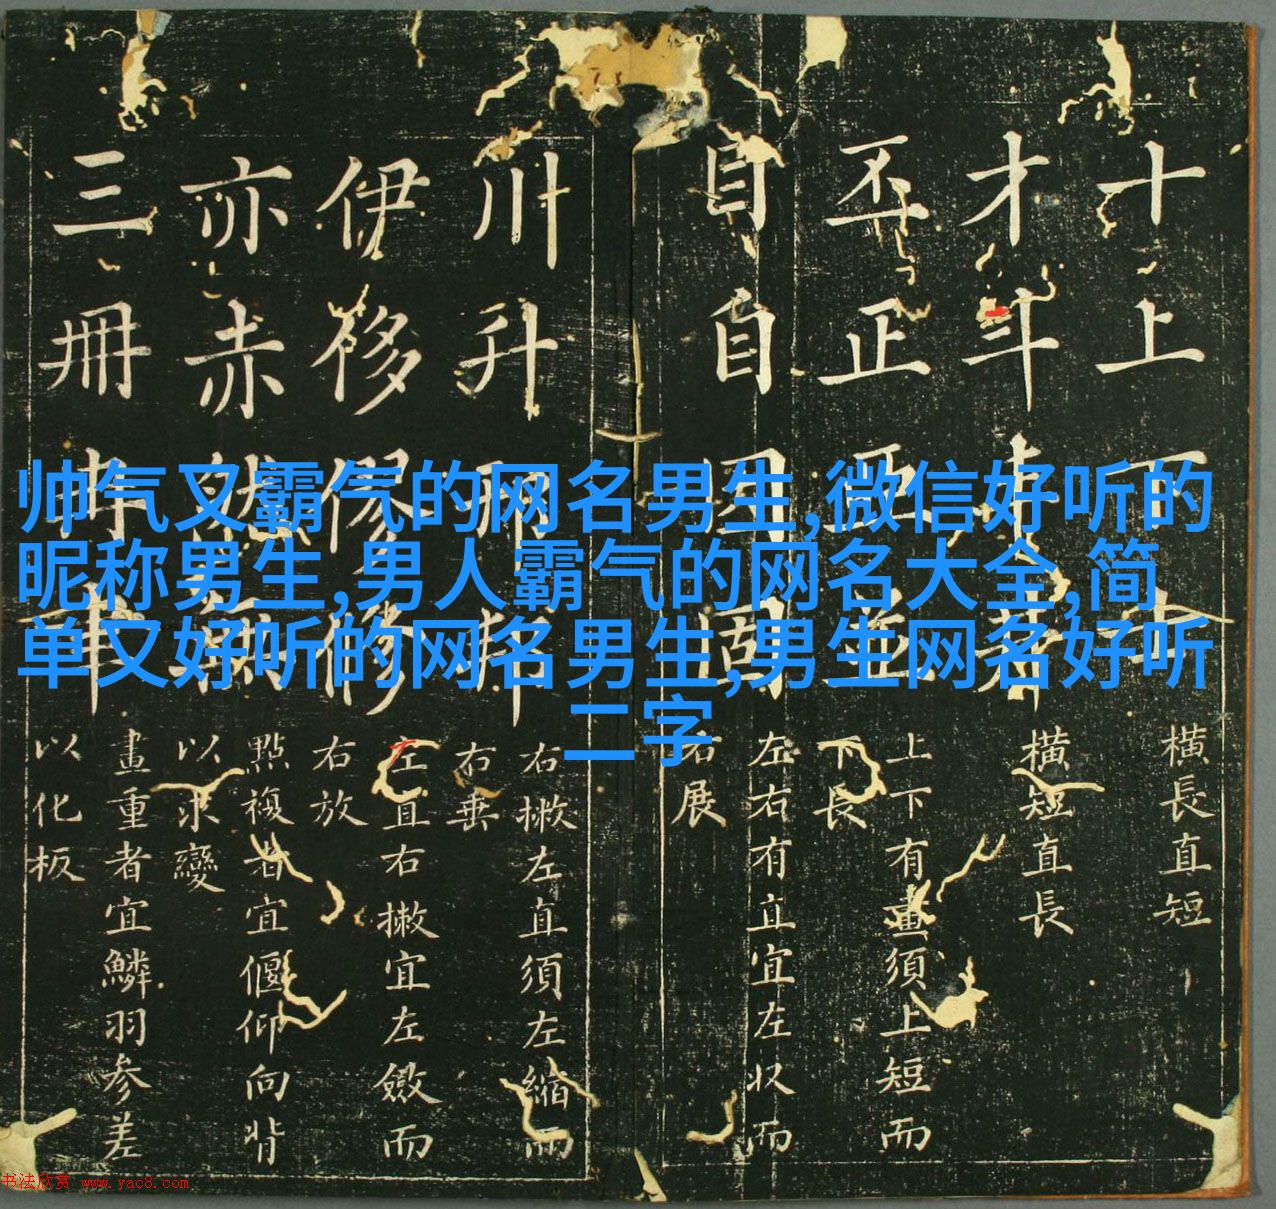 帅气又霸气的网名男生,微信好听的
昵称男生,男人霸气的网名大全,简
单又好听的网名男生,男生网名好听
二字
十上下士
橫長直短
才斗
橫短直長
丕正
上下有畫須上短而
下長
自自因固
左右有直宜左収而
右展
川升
右撇左直須左縮而
右垂
伊侈
左直右撇宜左斂而
右放
亦赤
點複者宜偃仰向背
以求變
三冊
畫重者宜鱗羽参差
以化板
书法欣赏 www.yac8.com